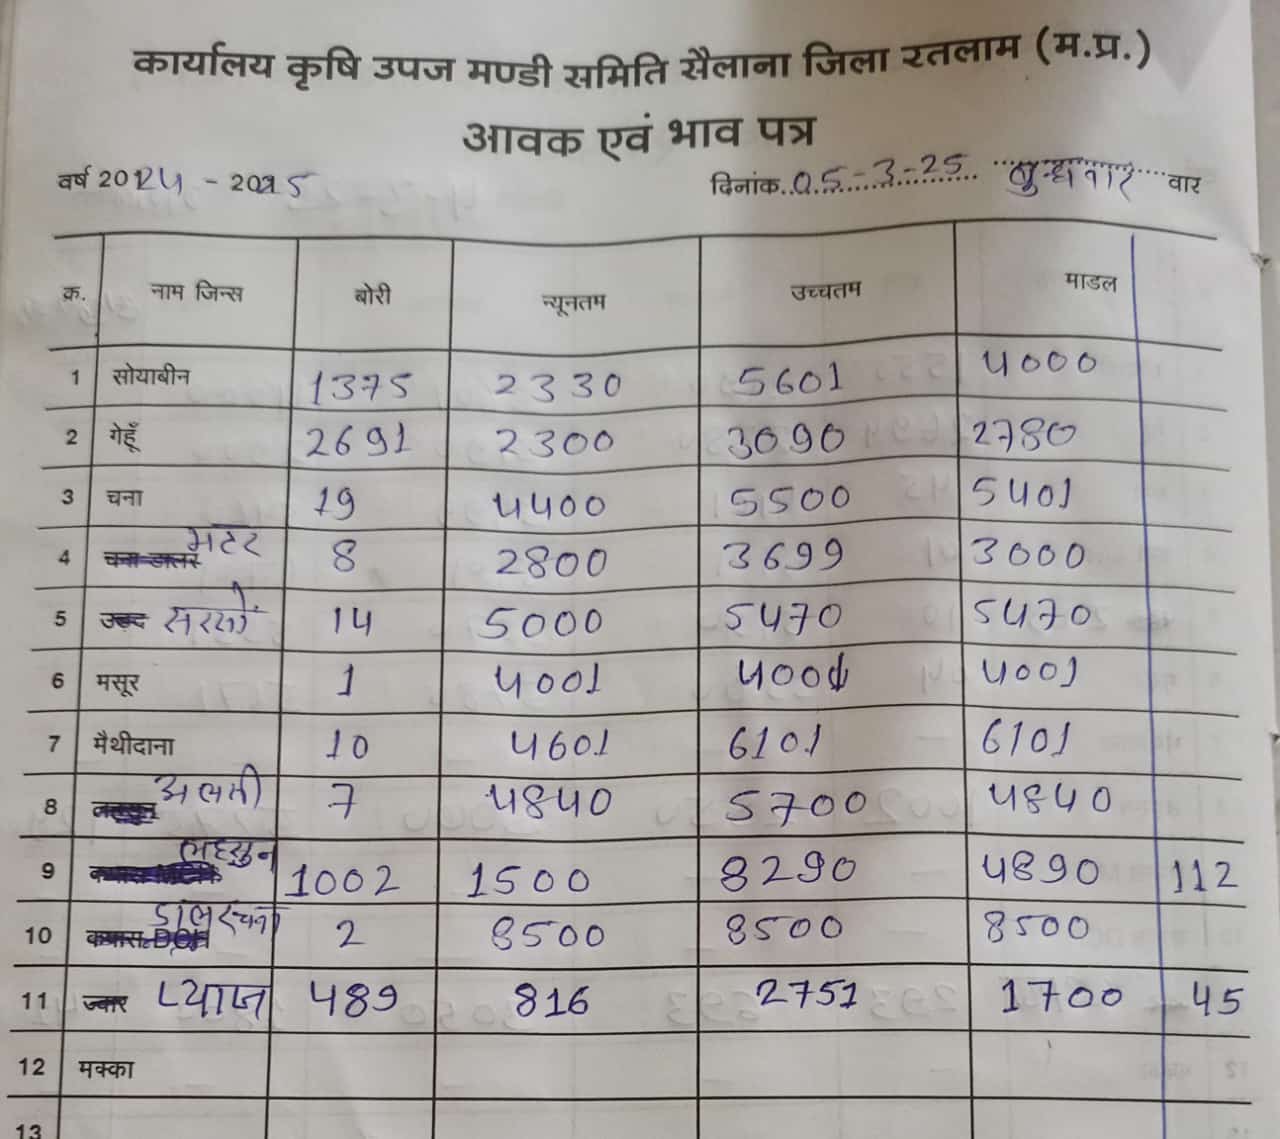 कार्यालय कृषि उपज मण्डी समिति सैलाना जिला रतलाम (म.प्र.)
आवक एवं भाव पत्र
वर्ष 2024 - 2025 दिनांक 05-3-25 बुधवार वार
क्र. नाम जिन्स बोरी न्यूनतम उच्चतम माडल
1 सोयाबीन 1375 2330 5601 4000
2 गेहूँ 2691 2300 3090 2780
3 चना 19 4400 5500 5401
4 मटर 8 2800 3699 3000
5 उड़द सरसों 14 5000 5470 5470
6 मसूर 1 4001 4001 4001
7 मैथीदाना 10 4601 6101 6101
8 अलसी 7 4840 5700 4840
9 लहसुन 1002 1500 8290 4890 112
10 डालरचना 2 8500 8500 8500
11 ज्वार प्याज 489 816 2751 1700 45
12 मक्का
13